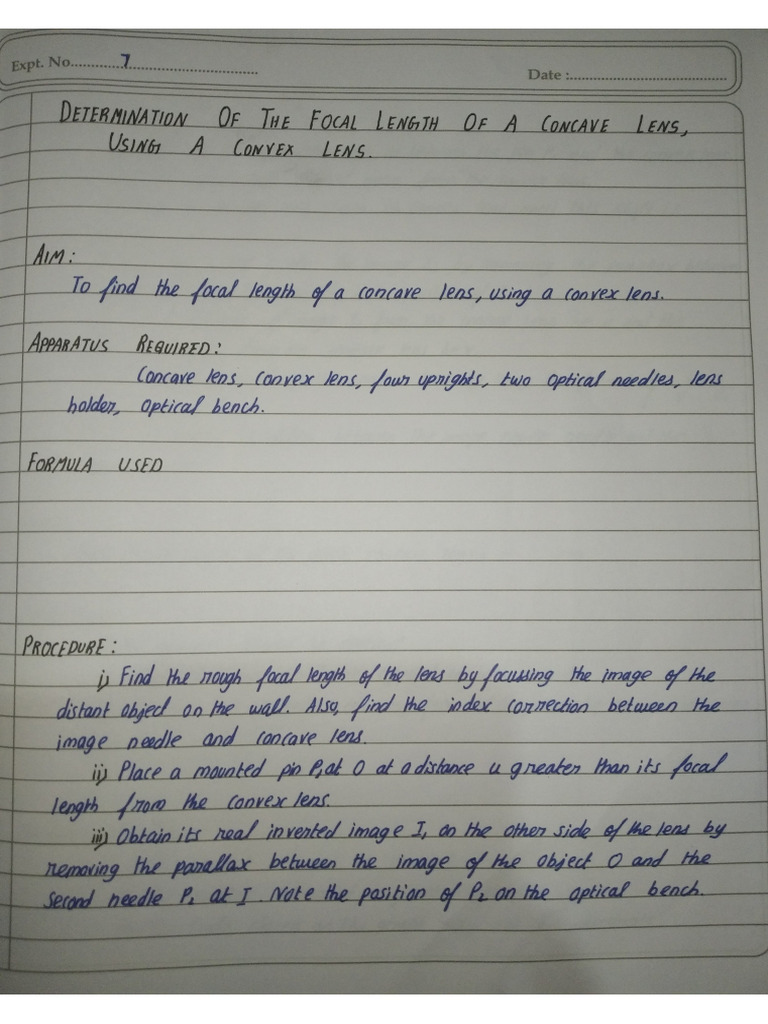 Expt. No. 7
Date :
DETERMINATION OF THE FOCAL LENGTH OF A CONCAVE LENS,
USING A CONVEX LENS.
AIM:
To find the focal length of a concave lens, using a convex lens.
APPARATUS REQUIRED:
Concave lens, convex lens, four uprights, two optical needles, lens
holder, optical bench.
FORMULA USED
PROCEDURE:
i) Find the rough focal length of the lens by focussing the image of the
distant object on the wall. Also, find the index correction between the
image needle and concave lens.
ii) Place a mounted pin P, at O at a distance u greater than its focal
length from the convex lens.
iii) Obtain its real inverted image I, on the other side of the lens by
removing the parallax between the image of the object O and the
second needle P₂ at I. Note the position of P₂ on the optical bench.